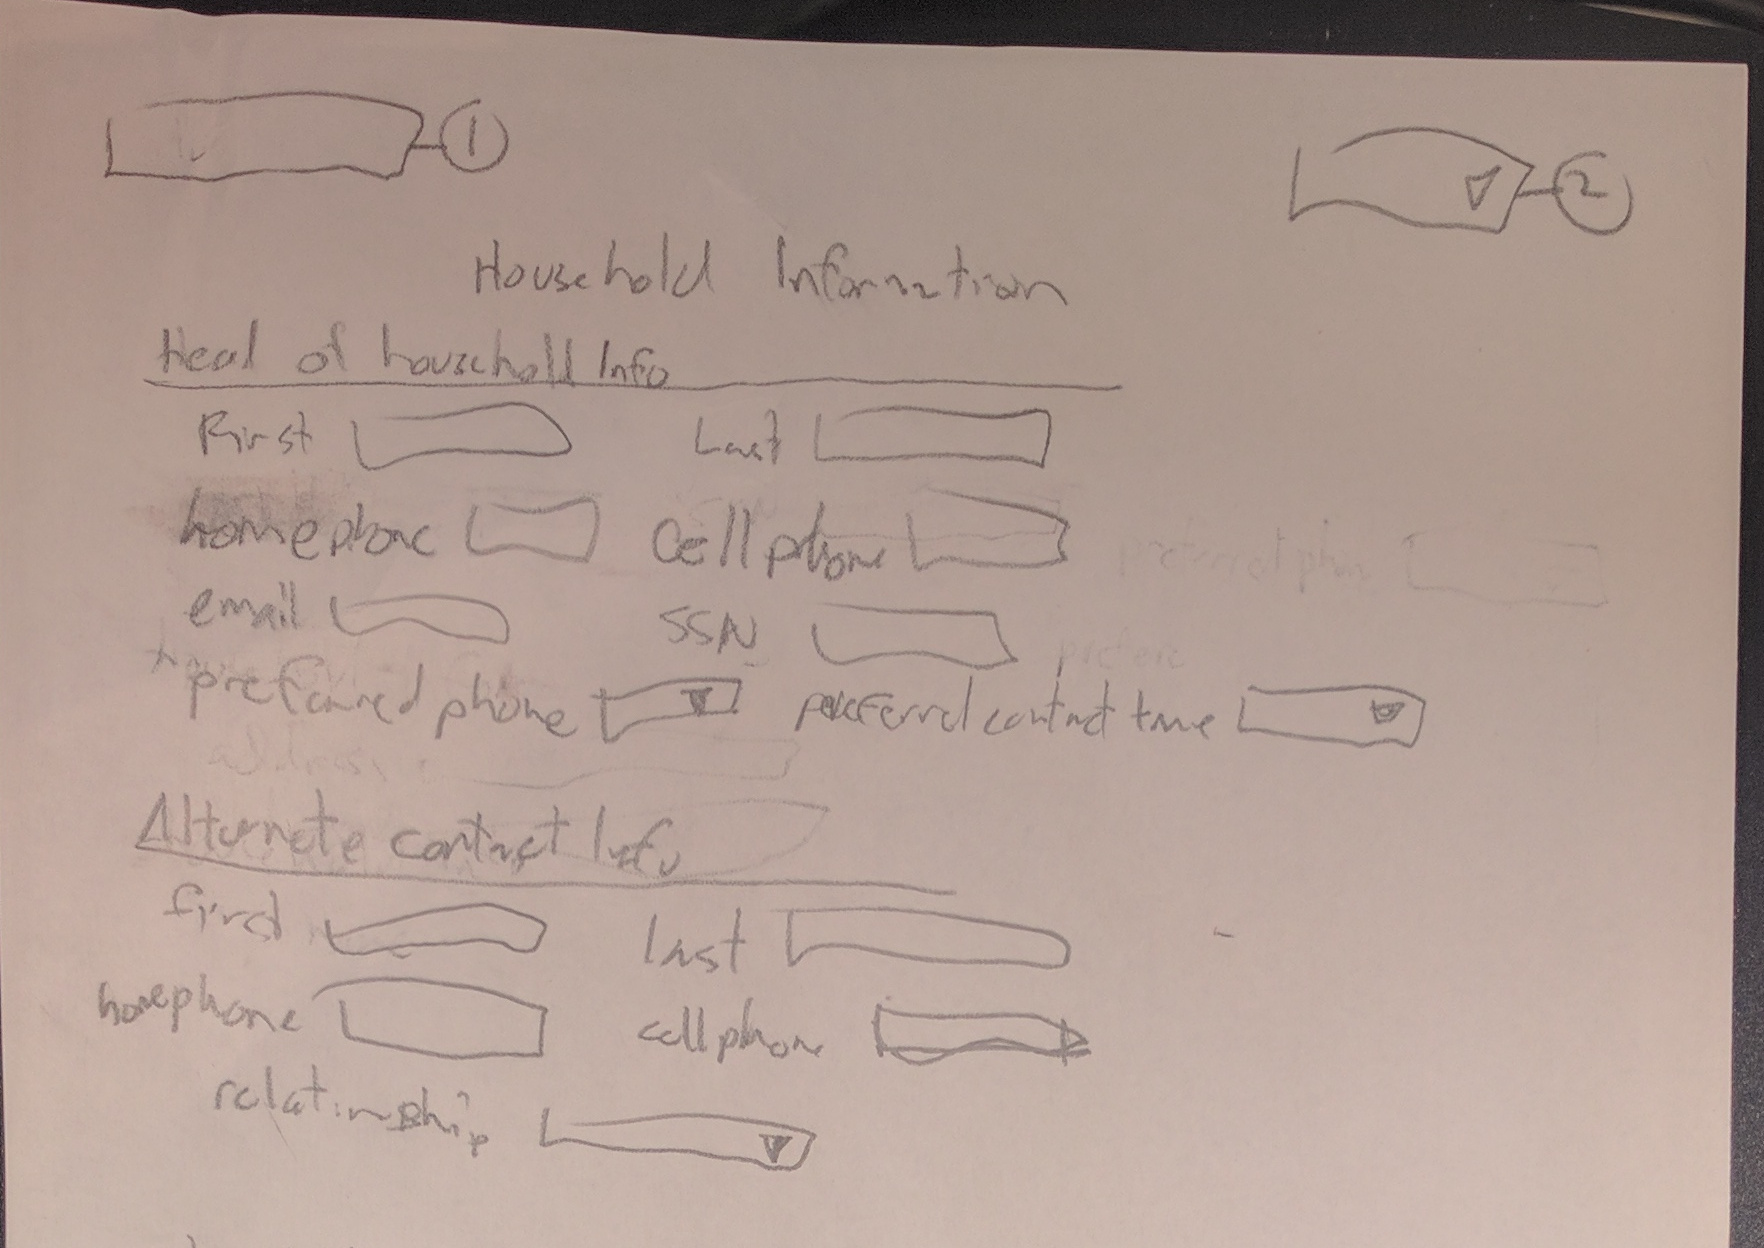 1
2
Household Information
Head of household Info
First Last
homephone Cell phone preferred phon
email SSN
prefere
preferred phone preferred contact time
address
Alternate contact Info
first last
homephone cell phone
relationship